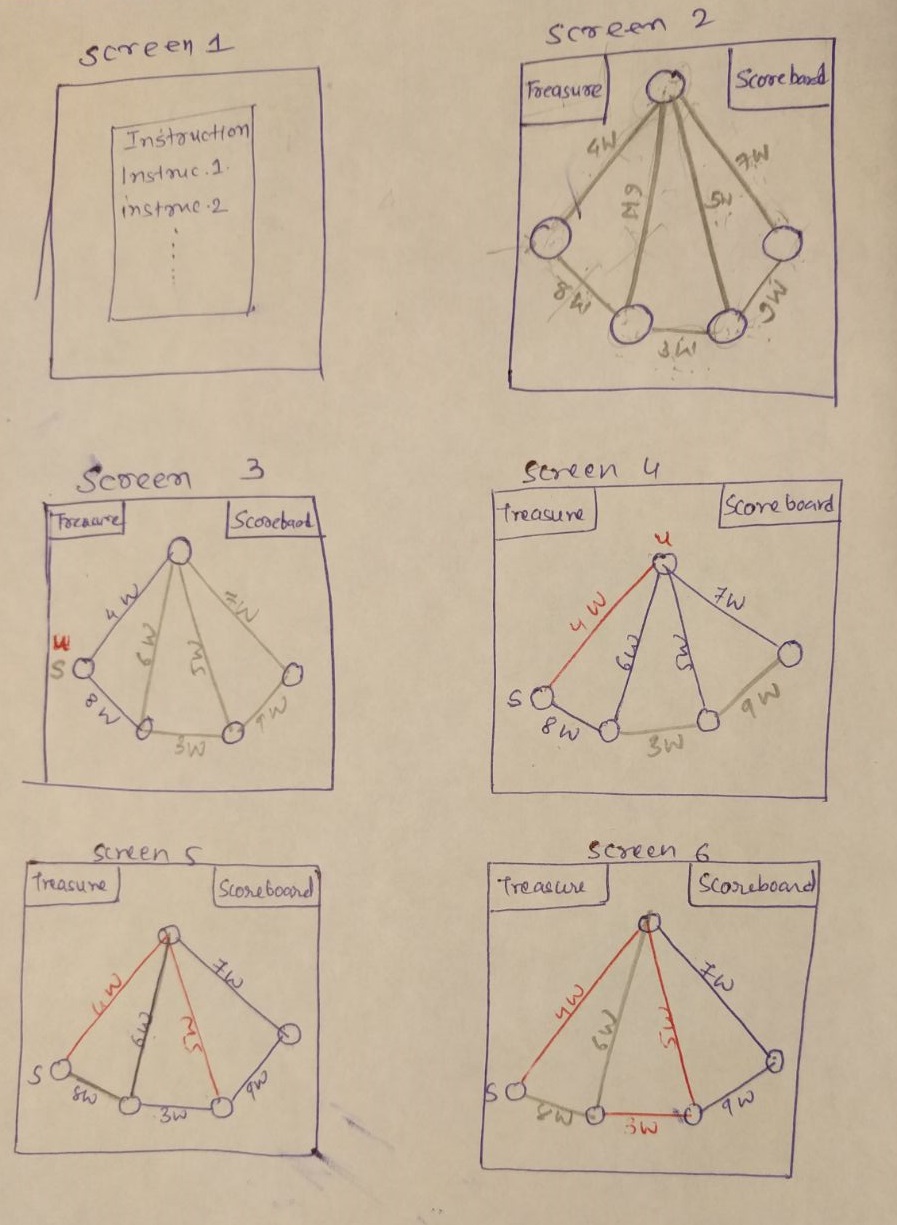 Screen 1
Instruction
Instruc.1.
instruc.2
Screen 2
Treasure
Scoreboard
4W
6W
5W
7W
8W
3W
9W
Screen 3
Treasure
Scoreboard
4W
6W
5W
7W
u
S
8W
3W
9W
Screen 4
Treasure
Scoreboard
u
4W
6W
5W
7W
S
8W
3W
9W
Screen 5
Treasure
Scoreboard
4W
6W
5W
7W
S
8W
3W
9W
Screen 6
Treasure
Scoreboard
4W
6W
5W
7W
S
8W
3W
9W